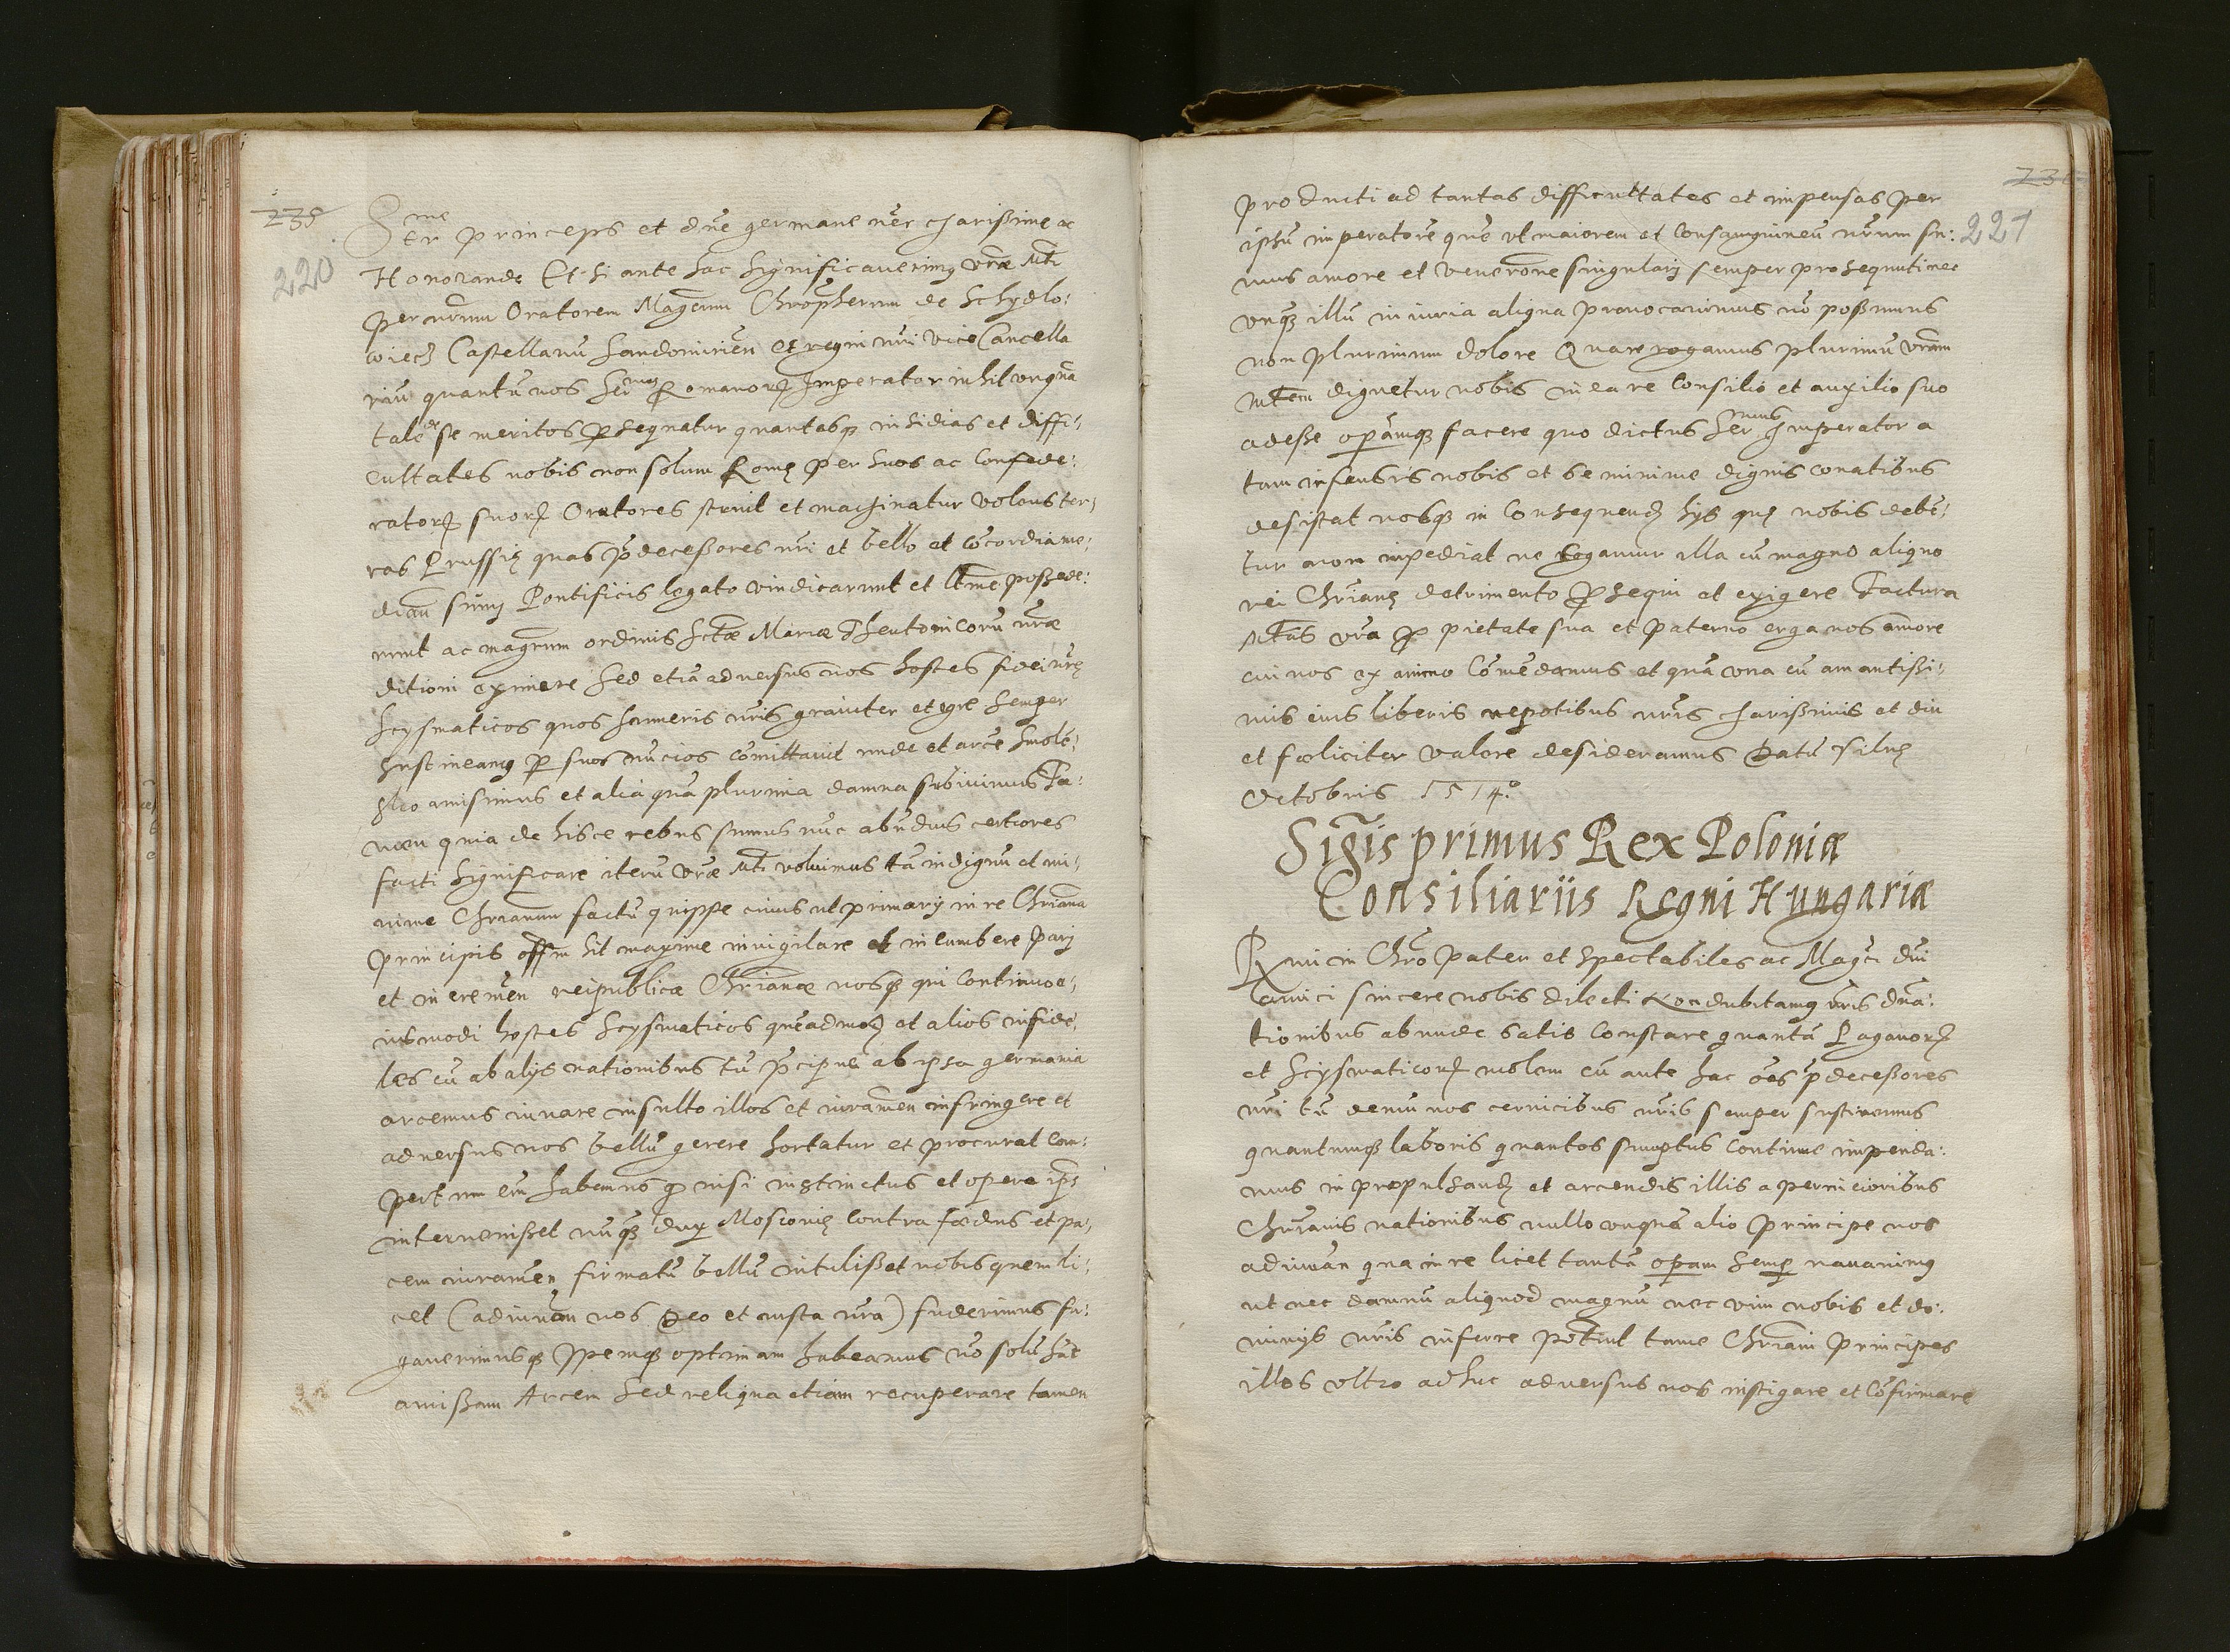 235
220
Ser^me princeps et dne germane nr charissime ac
Honorande Et si ante hac significaverimus vrae Mti
per nrum Oratorem Magcum Chroph̃erum de Schydlo:
wiecz Castellanū Sandomirien et regni nri vice Cancella
riū quantū nos Ser^mus Romanorꝫ Imperator nihil vnquā
tale de se meritos ꝓsequatur quantasqꝫ insidias et diffi:
cultates nobis non solum Romę per suos ac Confede:
ratorꝫ suorꝫ Oratores struit et machinatur volens ter:
ras Prussię quas p̄decessores nri et bello et cōcordia me:
dian sūmi Pontificis legato vindicarunt et ltme possede:
runt ac magrum ordinis Sctae Mariae Theutonicorū nrae
ditioni eximere Sed etiā adversus nos hostes fidei nrę
Scysmaticos quos humeris nris graviter et egre semper
sustineamus ꝑ suos nūcios cōmittavit unde et arce Smolē:
sko amisimus et alia quā plurima damna subivimus Ta:
men quia de hisce rebus sumus nūc abūdius certiores
facti significare iterū vrae Mti voluimus tā indignū et mi:
nime Chrianum factū quippe cuius ut primarij in re Chriana
principis offm sit maxime invigilare et incumbere paci
et in cremen reipublicae Chrianae nosqꝫ qui continuo e:
iusmodi hostes Scysmaticos quēadmoꝫ et alios infide:
les cū ab alijs nationibus tū p̄cipue ab ipsa germania
arcemus iuvare insulto illos et iuramen infringere et
adversus nos bellū gerere hortatur et procurat Com:
pertum em̄ habemus ꝙ nisi instinctus et opera ipś
intervenisset nūqꝫ dux Moscovię contra foedus et pa:
cem iuramen firmatū bellū intulisset nobis quem li:
cet (adiuvan nos Deo et iusta nra) fuderimus fu:
gaverimusqꝫ spemqꝫ optimam habeamus nō solū hāc
amissam Arcem Sed reliqua etiam recuperare tamen
221
producti ad tantas difficultates et impensas per
ipsū imperatorē quē vt maiorem et consanguineū nrum su:
mus amore et venerone singulari semper prosequuti nec
vnqꝫ illū iniuria aliqua provocavimus nō possumus
non plurimum dolore Quare rogamus plurimū vram
Mtem dignetur nobis in ea re Consilio et auxilio suo
adesse oꝑamqꝫ facere quo dictus Ser^mus Imperator a
tam infensis nobis et se minime dignis conatibus
desistat nosqꝫ in Consequendꝫ hijs quę nobis debē:
tur non impediat ne cogamur illa cū magno aliquo
rei Chrianę detrimento ꝓsequi et exigere Factura
Mtas vra ꝓ pietate sua et paterno erga nos amore
cui nos ex animo cōmēdamus et quā vna cū amantissi:
mis eius liberis nepotibus nris charissimis et diu
et foeliciter valere desideramus Datū Vilnę
Octobris 1514°
Sigis primus Rex Poloniae
Consiliariis Regni Hungariae
Rmi in Chro Pater et spectabiles ac Magci dni
amici sincere nobis dilecti Non dubitamus vris dna:
tionibus abunde satis constare quantā Paganorꝫ
et Scysmaticorꝫ molem cū ante hac ōes p̄decessores
nri tū demū nos cervicibus nris semper sustinemus
quantumqꝫ laboris quantos sumptus continue impenda:
mus in propulsandꝫ et arcendis illis a pernicioribus
Chrianis nationibus nullo vnquā alio principe nos
adiuvan qua in re licet tantū oꝑam semꝑ navavimus
ut nec damnū aliquod magnū nec vim nobis et do:
minijs nris inferre poterint tame Chriani Principes
illos vltro adhuc adversus nos instigare et cōfirmare